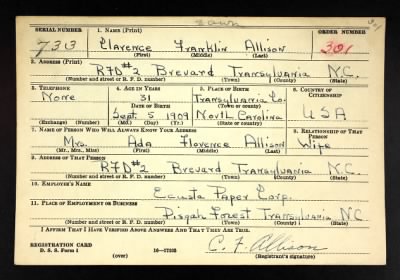 SERIAL NUMBER 1. NAME (Print) ORDER NUMBER
733 Clarence Franklin Allison 301
(First) (Middle) (Last)
2. ADDRESS (Print)
RFD#2 Brevard Transylvania N.C.
(Number and street or R. F. D. number) (Town) (County) (State)
3. TELEPHONE 4. AGE IN YEARS 5. PLACE OF BIRTH 6. COUNTRY OF CITIZENSHIP
None 31 Transylvania Co.
DATE OF BIRTH (Town or county)
Sept. 5 1909 North Carolina USA
(Exchange) (No.) (Mo.) (Day) (Yr.) (State or country)
7. NAME OF PERSON WHO WILL ALWAYS KNOW YOUR ADDRESS 8. RELATIONSHIP OF THAT PERSON
Mrs. Ada Florence Allison Wife
(Mr., Mrs., Miss) (First) (Middle) (Last)
9. ADDRESS OF THAT PERSON
RFD#2 Brevard Transylvania N.C.
(Number and street or R. F. D. number) (Town) (County) (State)
10. EMPLOYER'S NAME
Ecusta Paper Corp.
11. PLACE OF EMPLOYMENT OR BUSINESS
Pisgah Forest Transylvania N.C.
(Number and street or R. F. D. number) (Town) (County) (State)
I AFFIRM THAT I HAVE VERIFIED ABOVE ANSWERS AND THAT THEY ARE TRUE.
REGISTRATION CARD
D. S. S. Form 1 16—17105 C. F. Allison
(over) (Registrant's signature)